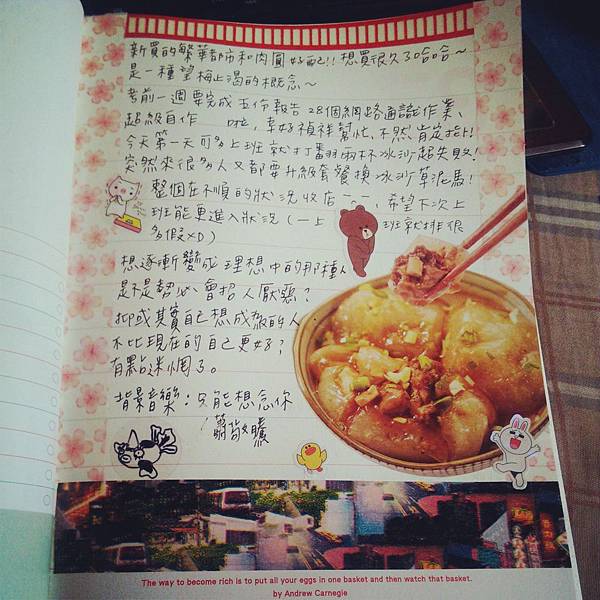 新買的繁華都市和肉圓好配!!想買很久了哈哈~
是一種望梅止渴的概念~
考前一週要完成五份報告28個網路通識作業、
超級自作 啦,幸好禎祥幫忙,不然肯定挫!
今天第一天可多上班就打翻兩杯冰沙超失敗!
突然來很多人又都要升級套餐換冰沙草泥馬!
整個在不順的狀況收店 一一,希望下次上
班能更進入狀況(一上 班就排很
多假XD)
想逐漸變成理想中的那種人
是不是勢必會招人厭惡?
抑或其實自己想成為的人
不比現在的自己更好?
有點迷惘了。
背景音樂:只能想念你
蕭敬騰
The way to become rich is to put all your eggs in one basket and then watch that basket.
by Andrew Carnegie